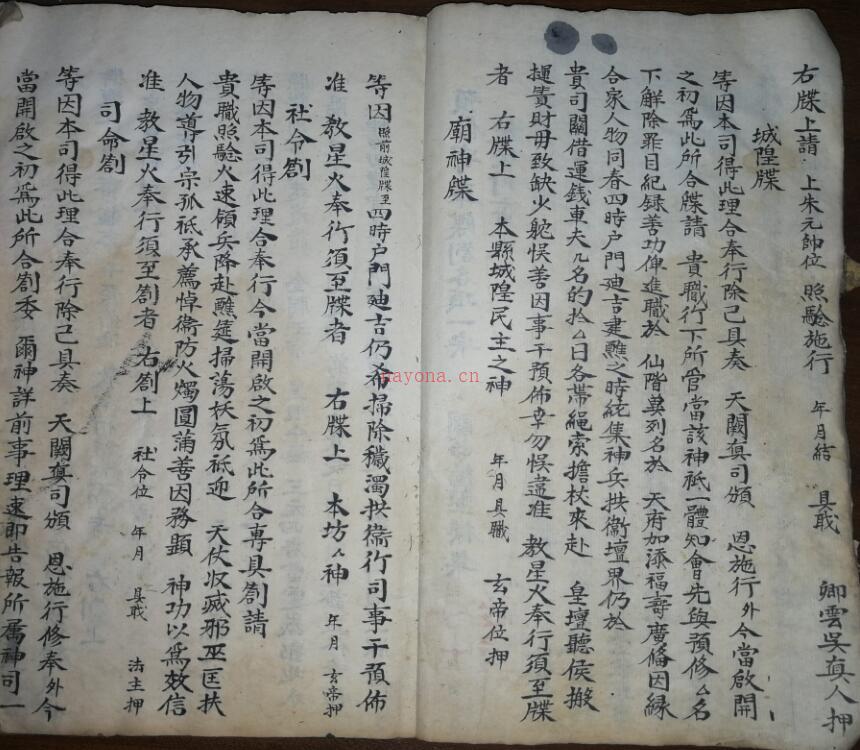 右牒上請 上朱元帥位 照驗施行 年月結 具戢 卿雲吳真人押
城隍牒
等因本司得此理合奉行除己具奏 天闕真司頒 恩施行外今當啟開
之初爲此所合牒請 貴職行下所管當該神祇一體知會先與預修厶名
下解除罪目紀録善功俾進職於 仙階莫列名於 天府加添福壽廣偹因緣
合家人物同春四時户門廸吉建醮之時統集神兵拱衞壇界仍於
貴司關借運錢車夫几名的扵厶日各帶繩索擔杖來赴 皇壇聽侯搬
運賣財毋致缺少躭悞善因事干預佈幸勿悞違准 教星火奉行須至牒
者 右牒上 本縣城隍民主之神 年月具職 玄帝位押
廟神牒
等因照前城隍牒至四時户門廸吉仍希掃除穢濁拱衞行司事干預佈
准 教星火奉行須至牒者 右牒上 本坊厶神 年月 玄帝押
社令劄
等因本司得此理合奉行今當開啟之初爲此所合專具劄請
貴職照驗火速領兵降赴醮筵掃蕩妖氛祗迎 天仗收滅邪巫匡扶
人物導引宗孤祗承薦悼衞防火燭圓滿善因務顯 神功以爲效信
准 教星火奉行須至劄者 右劄上 社令位 年月 具戢 法主押
司命劄
等因本司得此理合奉行除己具奏 天闕真司頒 恩施行修奉外今
當開啟之初爲此所合劄委 爾神詳前事理速即告報所屬神司一
nayona.cn